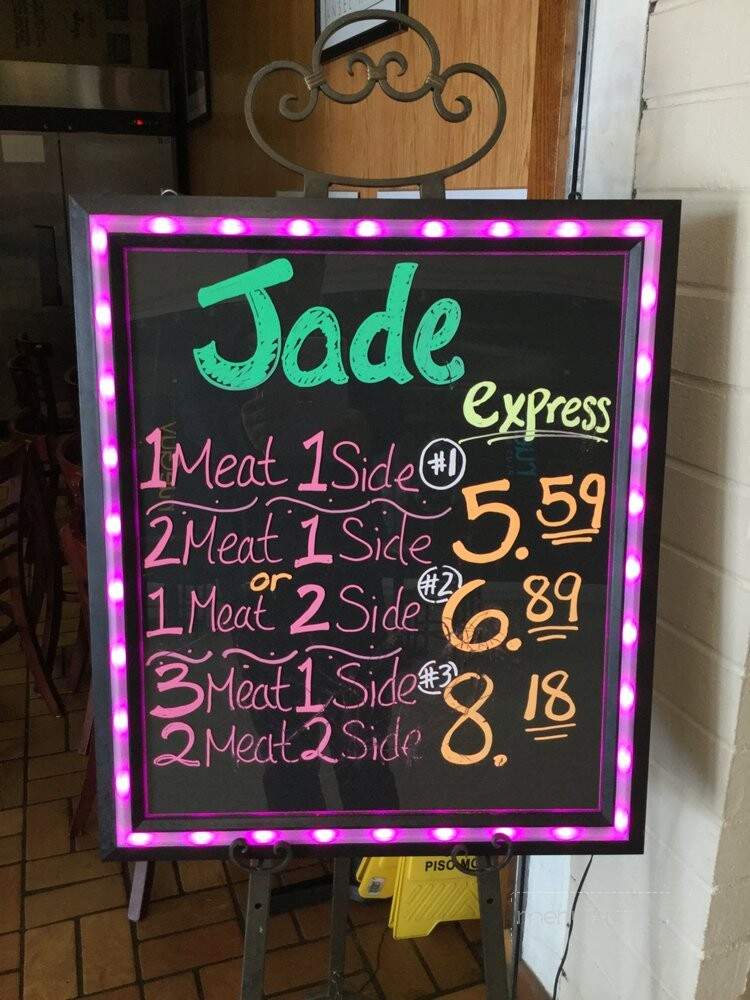 Jade
express
1 Meat 1 Side #1 5.59
2 Meat 1 Side
or
1 Meat 2 Side #2 6.89
3 Meat 1 Side #3 8.18
2 Meat 2 Side
PISO MO